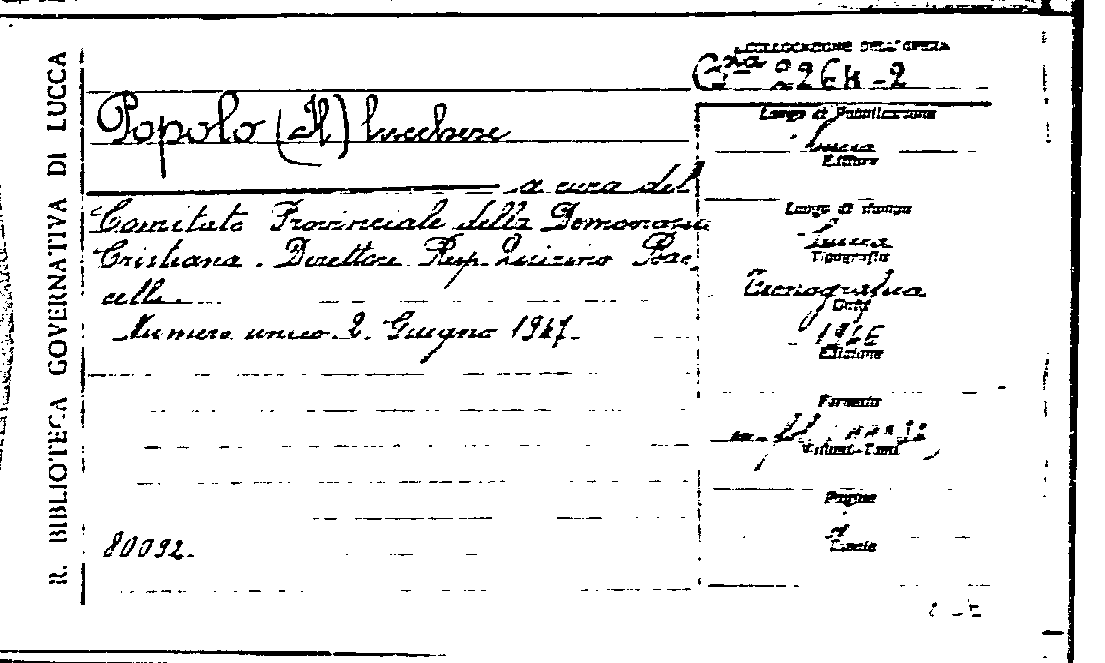 R. BIBLIOTECA GOVERNATIVA DI LUCCA
COLLOCAZIONE DELL'OPERA
Popolo (Il) lucchese
a cura del
Comitato Provinciale della Democrazia
Cristiana. Direttore Resp.
celli.
Numero unico. 2. Giugno 1947.
80092.
Luogo di Pubblicazione
Lucca
Editore
Luogo di stampa
Lucca
Tipografia
Tecnografica
Data
Edizione
Formato
Volumi-Tomi
Pagine
Tavole